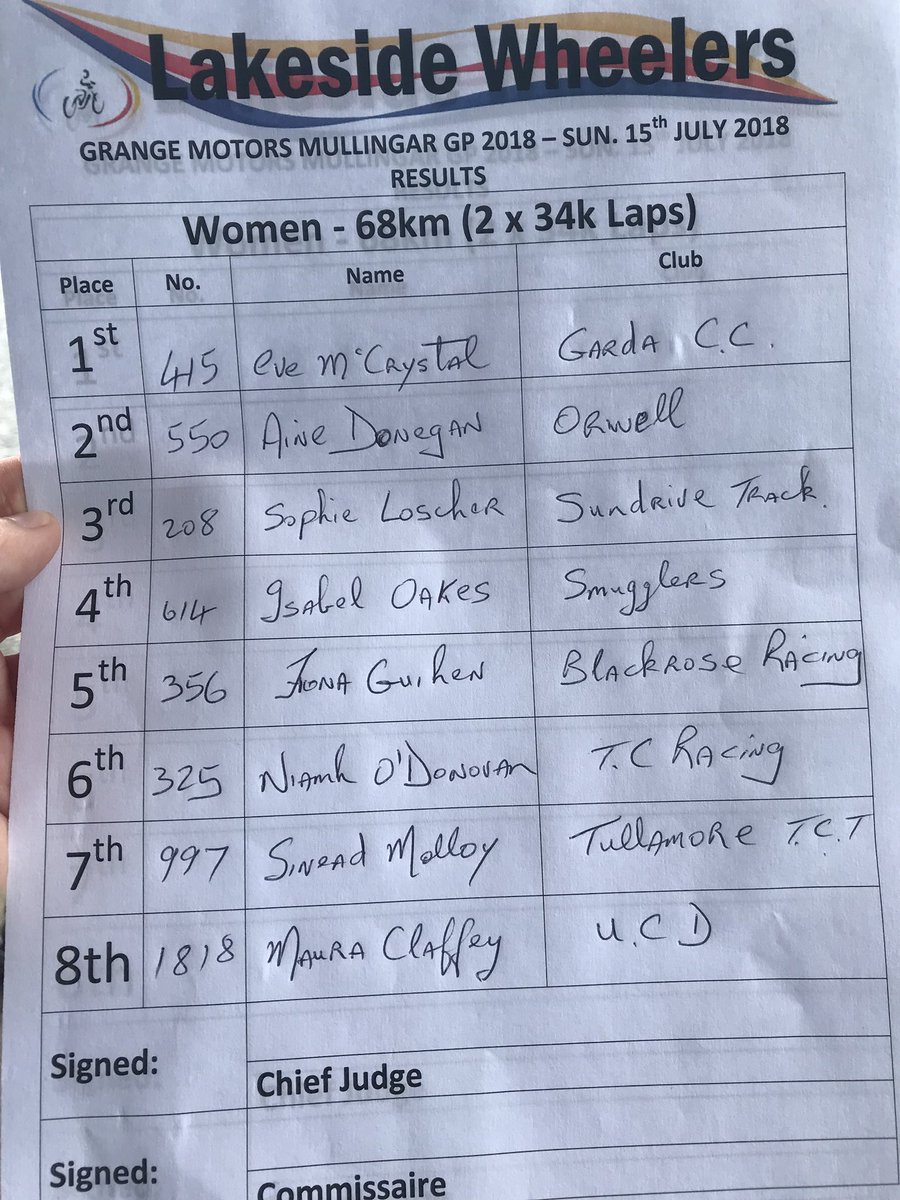 Lakeside Wheelers
GRANGE MOTORS MULLINGAR GP 2018 – SUN. 15th JULY 2018
RESULTS
Women - 68km (2 x 34k Laps)
Place No. Name Club
1st 415 Eve McCrystal Garda C.C.
2nd 550 Aine Donegan Orwell
3rd 208 Sophie Loscher Sundrive Track.
4th 614 Isabel Oakes Smugglers
5th 356 Fiona Guihen Blackrose Racing
6th 325 Niamh O'Donovan T.C Racing
7th 997 Sinead Molloy Tullamore T.C.T
8th 1818 Maura Claffey U.C.D
Signed:
Chief Judge
Signed:
Commissaire